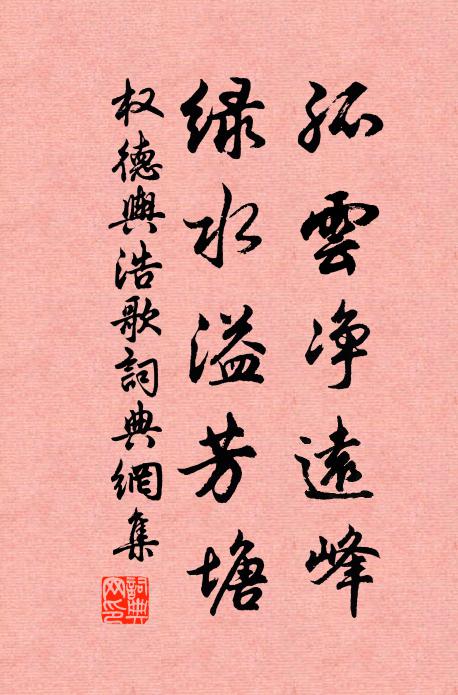 孤雲净遠峰
绿水溢芳塘
权德興浩歌詞典網集
詞典网印